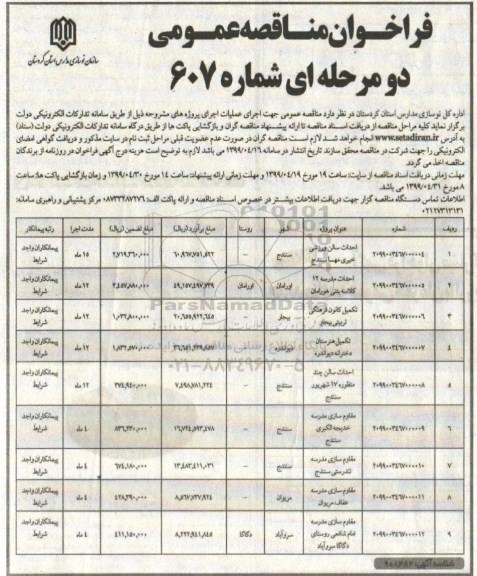 فراخوان مناقصه عمومی
دو مرحله ای شماره ۶۰۷
سازمان نوسازی مدارس استان کردستان
اداره کل نوسازی مدارس استان کردستان در نظر دارد مناقصه عمومی جهت اجرای عملیات اجرای پروژه های مشروحه ذیل از طریق سامانه تدارکات الکترونیکی دولت
برگزار نماید کلیه مراحل مناقصه از دریافت اسناد مناقصه تا ارائه پیشنهاد مناقصه گران و بازگشایی پاکت ها از طریق درگاه سامانه تدارکات الکترونیکی دولت (ستاد)
به آدرس www.setadiran.ir انجام خواهد شد. لازم است مناقصه گران در صورت عدم عضویت قبلی مراحل ثبت نام در سایت مذکور و دریافت گواهی امضای
الکترونیکی را جهت شرکت در مناقصه محقق سازند تاریخ انتشار در سامانه ۱۳۹۹/۰۴/۱۶ می باشد لازم به توضیح است هزینه درج آگهی فراخوان در روزنامه از برندگان
مناقصه اخذ می گردد.
مهلت زمانی دریافت اسناد مناقصه از سایت: ساعت ۱۹ مورخ ۱۳۹۹/۰۴/۱۹ و مهلت زمانی ارائه پیشنهاد: ساعت ۱۴ مورخ ۱۳۹۹/۰۴/۳۰ و زمان بازگشایی پاکت ها: ساعت
۸ مورخ ۱۳۹۹/۰۴/۳۱ می باشد.
اطلاعات تماس دستگاه مناقصه گزار جهت دریافت اطلاعات بیشتر در خصوص اسناد مناقصه و ارائه پاکت الف: ۰۸۷۳۳۲۸۷۲۷۶ مرکز پشتیبانی و راهبری سامانه:
۰۲۱۲۷۳۱۳۱۳۱
ردیف شماره عنوان پروژه شهر روستا مبلغ برآورد(ریال) مبلغ تضمین (ریال) مدت اجرا رتبه پیمانکار
۱ ۲۰۹۹۰۰۳۴۶۷۰۰۰۰۰۴ احداث سالن ورزشی خیری مهسا سنندج سنندج - ۱۵ ماه پیمانکاران واجد شرایط
۲ ۲۰۹۹۰۰۳۴۶۷۰۰۰۰۰۵ احداث مدرسه ۱۲ کلاسه بتنی هورامان اورامان اورامان ۱۲ ماه پیمانکاران واجد شرایط
۳ ۲۰۹۹۰۰۳۴۶۷۰۰۰۰۰۶ تکمیل کانون فرهنگی تربیتی بیجار بیجار - ۲۰,۶۵۵,۹۲۲,۶۵۵ ۱,۰۳۲,۸۰۰,۰۰۰ ۱۲ ماه پیمانکاران واجد شرایط
۴ ۲۰۹۹۰۰۳۴۶۷۰۰۰۰۰۷ تکمیل هنرستان دخترانه دیواندره دیواندره - ۱۲ ماه پیمانکاران واجد شرایط
۵ ۲۰۹۹۰۰۳۴۶۷۰۰۰۰۰۸ احداث سالن چند منظوره ۱۷ شهریور سنندج سنندج - ۷,۴۹۸,۷۸۱,۲۲۴ ۳۷۴,۹۴۰,۰۰۰ ۱۲ ماه پیمانکاران واجد شرایط
۶ ۲۰۹۹۰۰۳۴۶۷۰۰۰۰۰۹ مقاوم سازی مدرسه خدیجه الکبری سنندج سنندج - ۱۶,۷۲۴,۵۹۳,۴۷۸ ۸۳۶,۲۳۰,۰۰۰ ۴ ماه پیمانکاران واجد شرایط
۷ ۲۰۹۹۰۰۳۴۶۷۰۰۰۰۱۰ مقاوم سازی مدرسه تندرستی سنندج سنندج - ۱۳,۴۸۳,۴۱۱,۰۳۱ ۶۷۴,۱۸۰,۰۰۰ ۴ ماه پیمانکاران واجد شرایط
۸ ۲۰۹۹۰۰۳۴۶۷۰۰۰۰۱۱ مقاوم سازی مدرسه عفاف مریوان مریوان - ۸,۵۶۷,۷۳۷,۹۲۴ ۴۲۸,۳۹۰,۰۰۰ ۴ ماه پیمانکاران واجد شرایط
۹ ۲۰۹۹۰۰۳۴۶۷۰۰۰۰۱۲ مقاوم سازی مدرسه امام شافعی روستای دگاگا سروآباد سروآباد دگاگا ۸,۲۲۲,۹۴۱,۸۴۵ ۴۱۱,۱۵۰,۰۰۰ ۴ ماه پیمانکاران واجد شرایط
ParsNamadData
۰۲۱-۸۸۳۴۹۶۷۰-۵